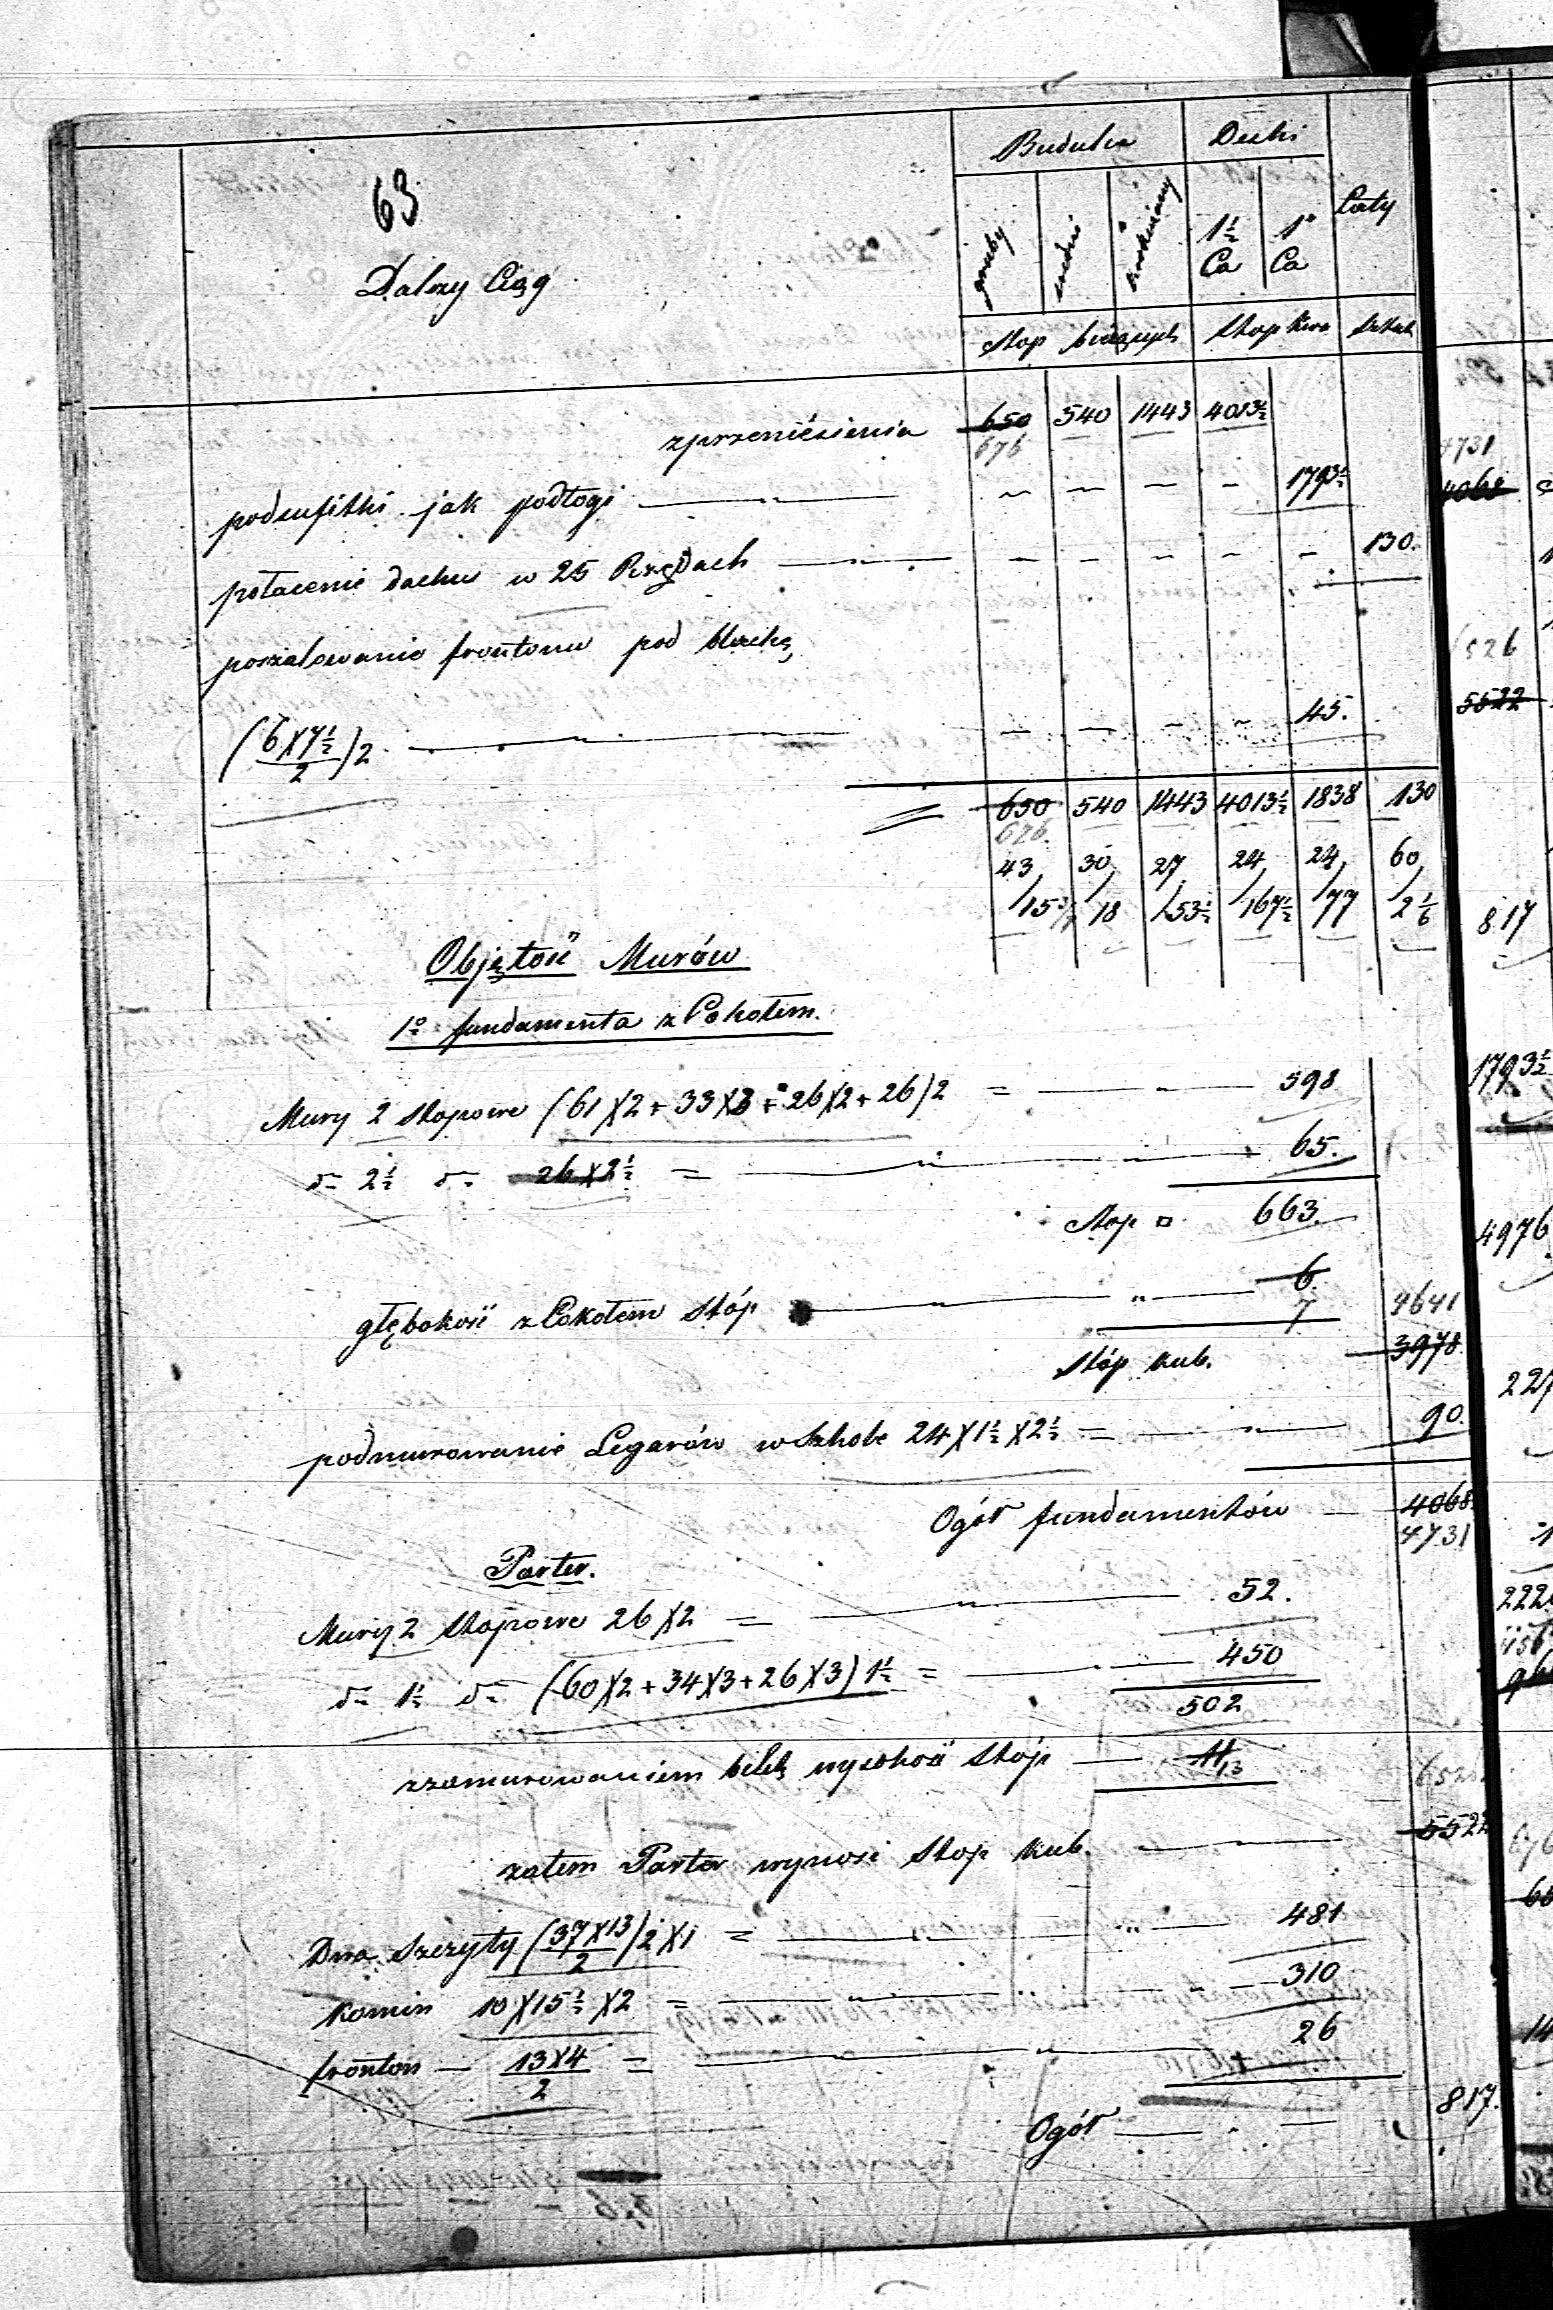 63
Dalszy Ciąg
Budulca Deski Łaty
gruby średni krokwiany 1½ Ca 1" Ca
stop bieżących Stop kwa sztuk
z przeniesienia 650 540 1443 4013½
676
podsufitki jak podłogi — " — ~ ~ ~ ~ 1793½
połacenie dachu w 25 Rzędach — " — ~ ~ ~ ~ ~ 130.
poszalowanie frontonu pod blachę
(6X7½/2)2 — " — ~ ~ ~ ~ 45.
= 650 540 1443 4013½ 1838 130
676.
43/ 30/ 27/ 24/ 24/ 60/
/15 /18 /53½ /167½ /77 2⅙
Objętość Murów
1º fundamenta z Cokołem.
Mury 2 stopowe (61X2+33X3+26X2+26)2 = — " — 598
d— 2½ d— 26X2½ = — " — 65.
stop □ 663.
głębokość z Cokołem stóp — " — 6.
7
Stóp kub. 4641
3978
podmurowanie Legarów w szkole 24X1½X2½ = — " — 90.
Ogół fundamentów — 4068
4731
Parter.
Mury 2 stopowe 26X2 = — " — 52.
d— 1½ d— (60X2+34X3+26X3)1½ = — " — 450
502
z zamurowaniem belek wysokość stóp — 11
13
652
zatem Parter wynosi stop kub. — " — 5522
Dwa szczyty (37X13/2)2X1 = — " — 481
komin 10X15½X2 = — " — 310
fronton — 13X4/2 = — " — 26
Ogół — " — 817.
4731
4068
6526
5522
817
1793½
4976
227